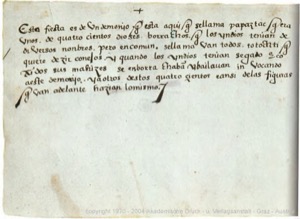 Esta fiesta es de vn demonjo q̃ esta aqui q̃ se llama papaztac q̃ era
vno, de quatro cientos dioses borrachos q̃ los yndios tenian de
diuersos nonbres, pero en comun, se llamauan todos, totochti q̃
quiere dezir conejos y quando los yndios tenian segado y co
do sus maizes se enborrachaban y bailauan ynbocando
a este demonjo. y a otros destos quatro cientos casi de las figuras
q̃ van adelante hazian lo mismo.
Copyright 1970 - 2004 Akademische Druck - u. Verlagsanstalt - Graz - Austria